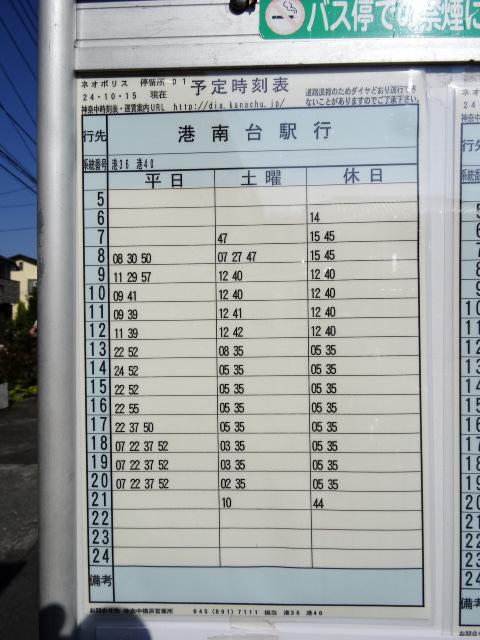 バス停での禁煙に
ネオポリス 停留所 01 予定時刻表
24-10-15 現在
神奈中時刻表・運賃案内URL http://dia.kanachu.jp/
道路混雑のためダイヤどおり運行でき
ないことがありますのでご了承下さい。
行先 港南台駅行
系統番号 港36 港40
平日 土曜 休日
5
6 14
7 47 15 45
8 08 30 50 07 27 47 15 45
9 11 29 57 12 40 12 40
10 09 41 12 40 12 40
11 09 39 12 41 12 40
12 11 39 12 42 12 40
13 22 52 08 35 05 35
14 24 52 05 35 05 35
15 22 52 05 35 05 35
16 22 55 05 35 05 35
17 22 37 50 05 35 05 35
18 07 22 37 52 03 35 05 35
19 07 22 37 52 03 35 05 35
20 07 22 37 52 02 35 05 35
21 10 44
22
23
24
備考
お問合せ先 神奈中横浜営業所 045(891)7111 担当 港36 港40